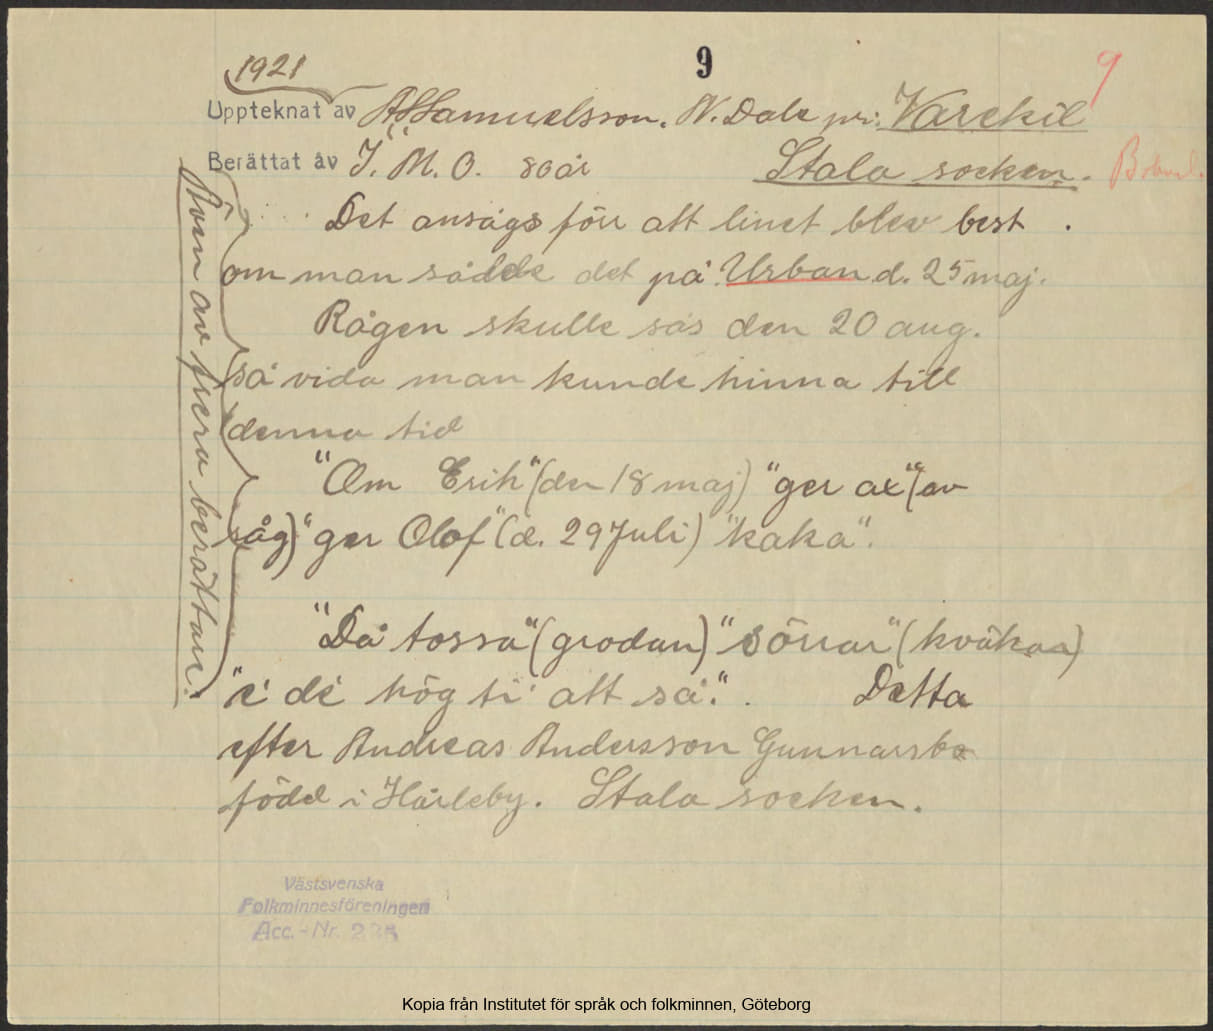 9
9
1921
Uppteknat av A. Samuelsson. N. Dale pr: Varekil
Berättat av J. M. O. 80 år Stala socken.
Det ansågs förr att linet blev best.
om man sådde det på Urban d. 25 maj.
Rågen skulle sås den 20 aug.
så vida man kunde hinna till
denna tid
"Om Erik" (den 18 maj) "ger ax" (av
råg) "ger Olof" (d. 29 Juli) "kaka".
"Då tossa" (grodan) "sörrar" (kväkaa)
"e' de' hög ti' att så".
Detta
efter Andreas Andersson Gunnarsbo
född i Hårleby. Stala socken.
Även av flera berättare.
Västsvenska
Folkminnesföreningen
Acc.-Nr.
Kopia från Institutet för språk och folkminnen, Göteborg